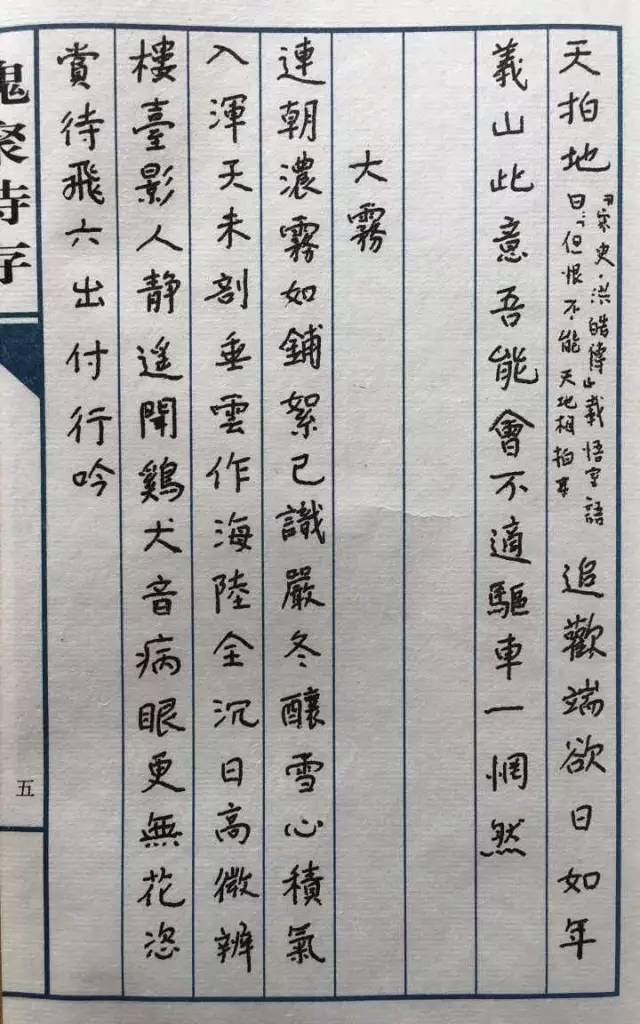 天拍地
宋史·洪皓傳山載悟室語
曰：但恨不能天地相拍耳
追歡端欲日如年
義山此意吾能會不適驅車一惘然
大霧
連朝濃霧如鋪絮已識嚴冬釀雪心積氣
入渾天未剖垂雲作海陸全沉日高微辨
樓臺影人靜遙聞雞犬音病眼更無花恣
賞待飛六出付行吟
槐聚詩存
五